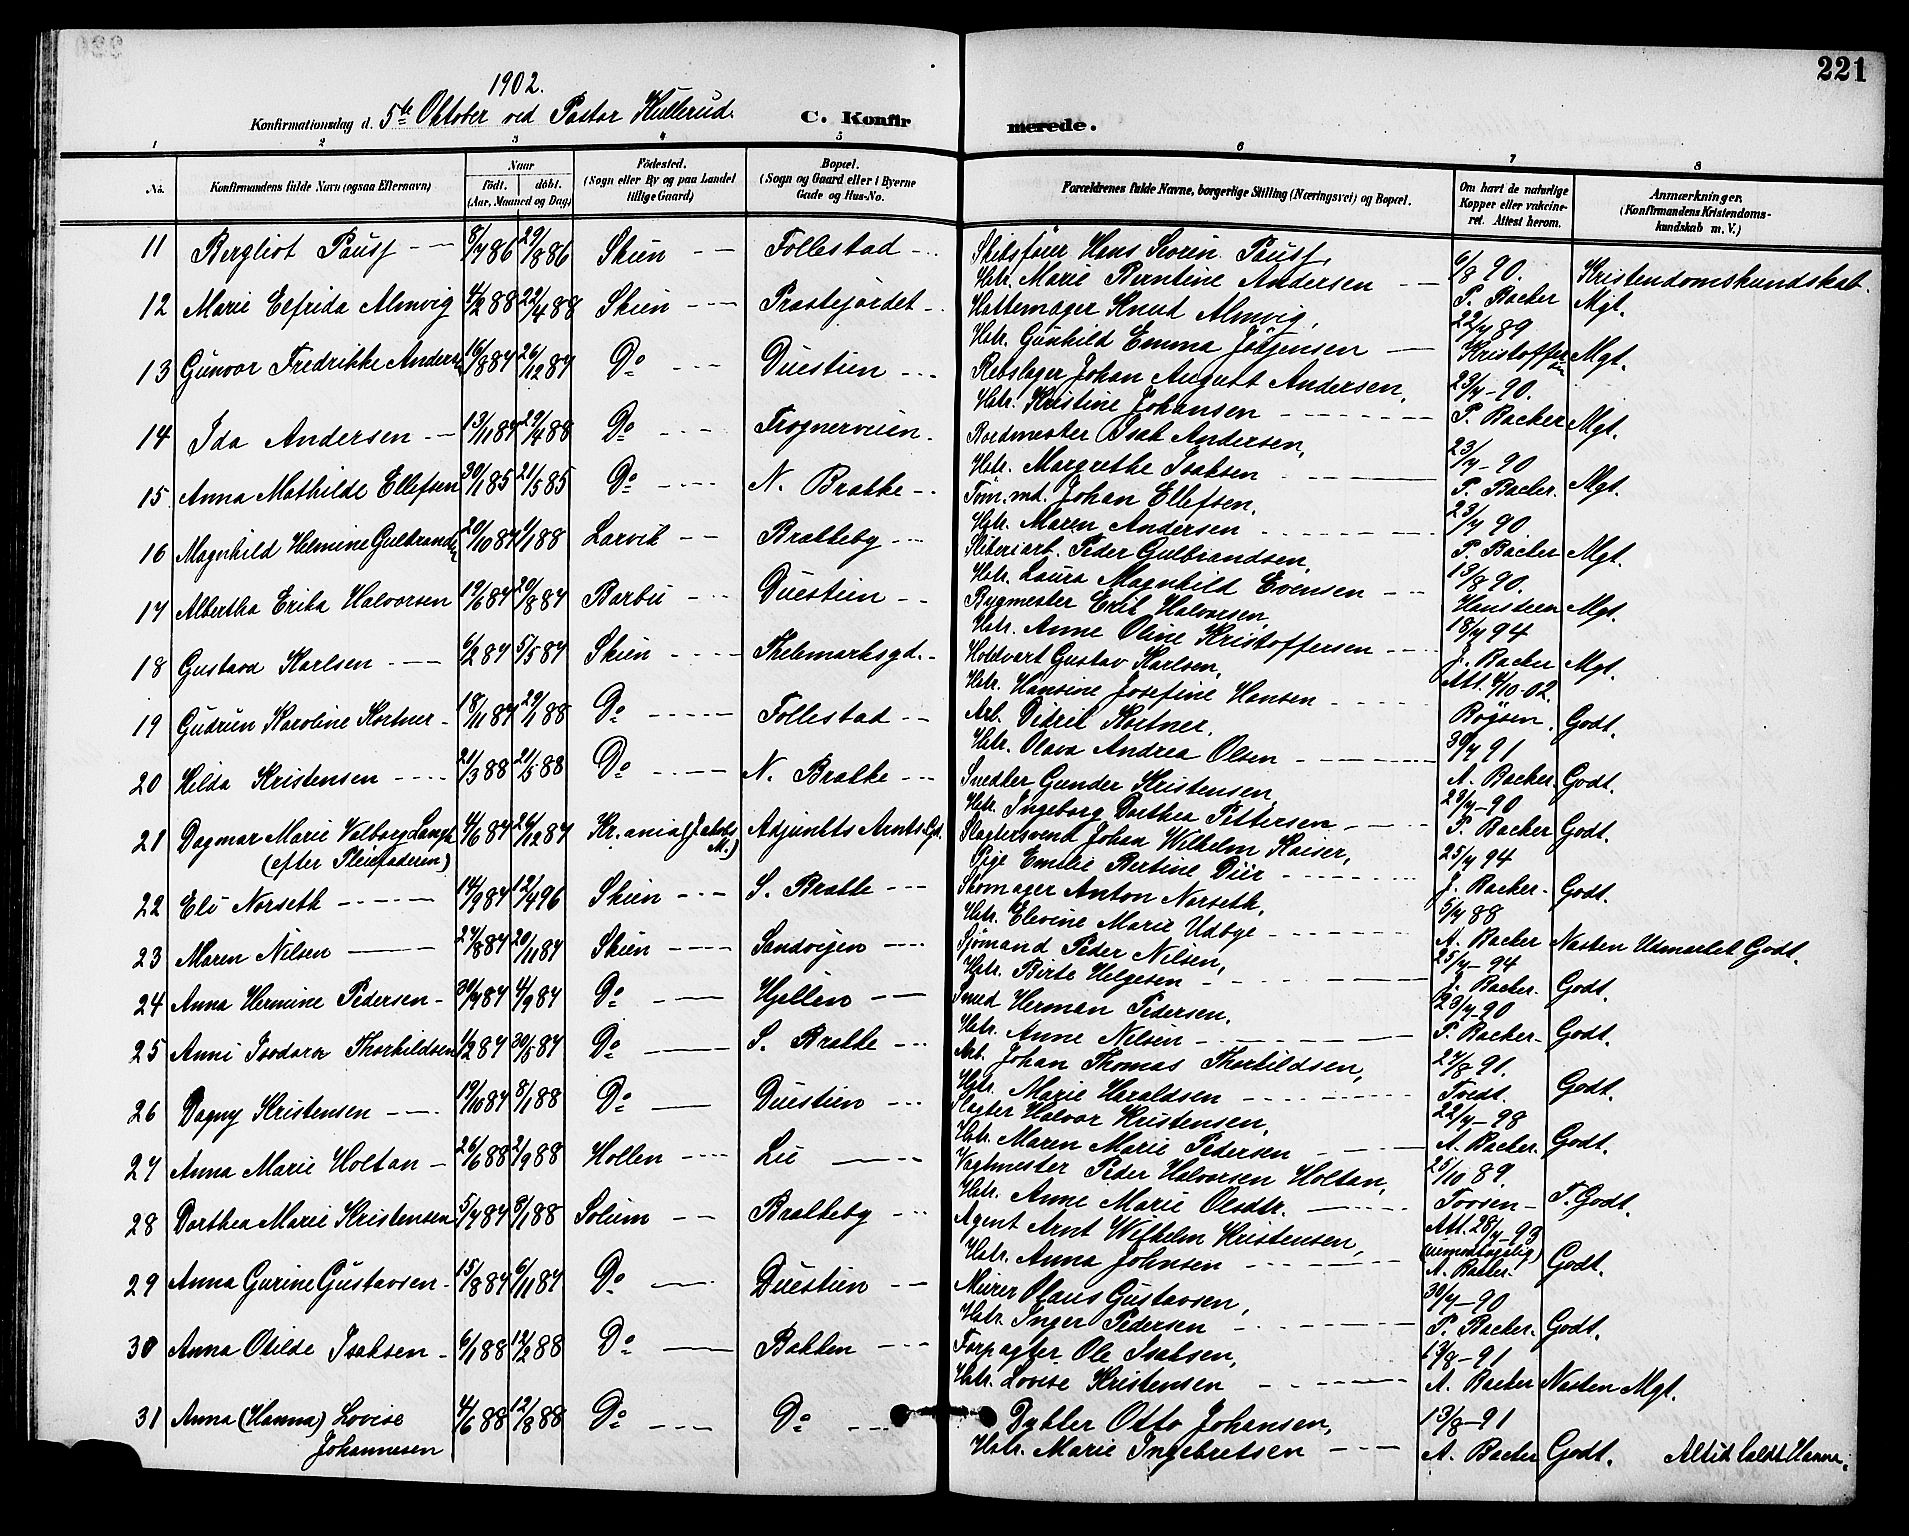 221
1902.
Konfirmationsdag d. 5te Oktober ved Pastor Kullerud. C. Konfirmerede.
1 2 3 4 5 6 7 8
No. Konfirmandens fulde Navn (ogsaa Efternavn) Naar født. døbt. (Aar, Maaned og Dag) Födested. (Sogn eller By og paa Landet tillige Gaard) Bopæl. (Sogn og Gaard eller i Byerne Gade og Hus-No. Forældrenes fulde Navne, borgerlige Stilling (Næringsvei) og Bopæl. Om havt de naturlige Kopper eller vakcineret. Attest herom. Anmærkninger. (Konfirmandens Kristendomskundskab m. V.)
11 Bergliot Pausf 8/7 86 29/8 86 Skien Follestad Skibsfører Hans Severin Pausf, 6/8 90. Kristendomskundskab.
Hstr. Marie Berntine Andersen P. Backer Mgt.
12 Marie Elfrida Almvig 4/2 88 22/4 88 Skien Prestejordet Hattemager Knud Almvig, 22/7 89
Hstr. Gunhild Emma Jörgensen Kristoffersen Mgt.
13 Gunvor Fredrikke Anders 16/8 87 26/12 87 Do Duestien Rebslager Johan August Andersen, 23/7-90.
Hstr. Kristine Johansen P. Backer Mgt.
14 Ida Andersen 13/11 87 29/4 88 Do Frognerveien Bordmester Isak Andersen, 23/7-90
Hstr. Margrethe Isaksen P. Backer. Mgt.
15 Anna Mathilde Ellefsen 30/1 85 21/5 85 Do N. Bratke Tøm.md. Johan Ellefsen, 23/7 90.
Hstr. Maren Andersen P. Backer Mgt.
16 Magnhild Helmine Gulbrands 20/10 87 1/1 88 Larvik Bratteby Sliberiarb. Peder Gulbrandsen, 13/8 90.
Hstr. Laura Magnhild Evensen Hansteen Mgt.
17 Albertha Erika Halvorsen 19/6 87 20/8 87 Barbu Duestien Bygmester Erik Halvorsen, 18/7 94
Hstr. Anne Oline Kristoffersen J. Backer Mgt.
18 Gustava Karlsen 6/2 87 5/5 87 Skien Thelemarksgd. Holdvert Gustav Karlsen, Att. 4/10-02.
Hstr. Hansine Josefine Hansen Bøysen. Godt.
19 Gudrun Karoline Kortner 18/11 87 29/1 88 Do Follestad Arb. Didrik Kortner, 30/7 91
Hstr. Olava Andrea Olsen A. Backer. Godt.
20 Hilda Kristensen 21/3 88 21/5 88 Do N. Bratke Snedker Gunder Kristensen, 29/7-90
Hstr. Ingeborg Dorthea Pettersen P. Backer Godt.
21 Dagmar Marie Valborg Lange 4/6 87 26/12 87 Kr.ania (Jakobs M.) Adjunkts Arntsgd. Slagtersvend Johan Wilhelm Kaiser, 25/7 94
(efter Pleiefaderen) Pige Emilie Bertine Diir J. Backer. Godt.
22 Eli Norseth 14/9 87 12/4 96 Skien S. Bratke Skomager Anton Norseth, 5/7 88
Hstr. Elevine Marie Udbye A. Backer Næsten Udmærket Godt.
23 Maren Nilsen 27/8 87 20/11 87 Skien Sandvigen Sjömand Peder Nilsen, 25/7-94
Hstr. Birte Helgesen J. Backer. Godt.
24 Anna Hermine Pedersen 30/7 87 4/9 87 Do Hjellen Smed Herman Pedersen, 23/7-90
Hstr. Anne Nilsen P. Backer. Godt.
25 Anni Isodora Thorkildsen 1/2 87 30/5 87 Do S. Bratke Arb. Johan Thomas Thorkildsen, 27/8 91.
Hstr. Marie Haraldsen Tvedt. Godt.
26 Dagny Kristensen 19/10 87 8/1 88 Do Duestien Slagter Halvor Kristensen, 22/7-98
Hstr. Maren Marie Pedersen A. Backer. Godt.
27 Anna Marie Holtan 26/6 88 2/9 88 Hollen Lie Vagtmester Peder Halvorsen Holtan, 25/10 89.
Hstr. Anne Marie Olsdtr. Toosen T. Godt.
28 Dorthea Marie Kristensen 5/7 87 8/1 88 Solum Bratteby Agent Arnt Wilhelm Kristensen, Att. 28/7-93
Hstr. Anna Johnsen (uimodtagelig) A. Backer. Godt.
29 Anna Gurine Gustavsen 15/8 87 6/11 87 Do Duestien Murer Olaus Gustavsen, 30/7-90
Hstr. Inger Pedersen P. Backer. Godt.
30 Anna Otilde Isaksen 6/1 88 12/2 88 Do Bakken Forpagter Ole Isaksen, 13/8-91
Hstr. Lovise Kristensen A. Backer Næsten Mgt.
31 Anna (Hanna) Lovise 4/6 88 12/8 88 Do Do Dykker Otto Johansen, 13/8-91
Johannesen Hstr. Marie Ingebretsen A. Backer Godt. Altid kaldt Hanna.